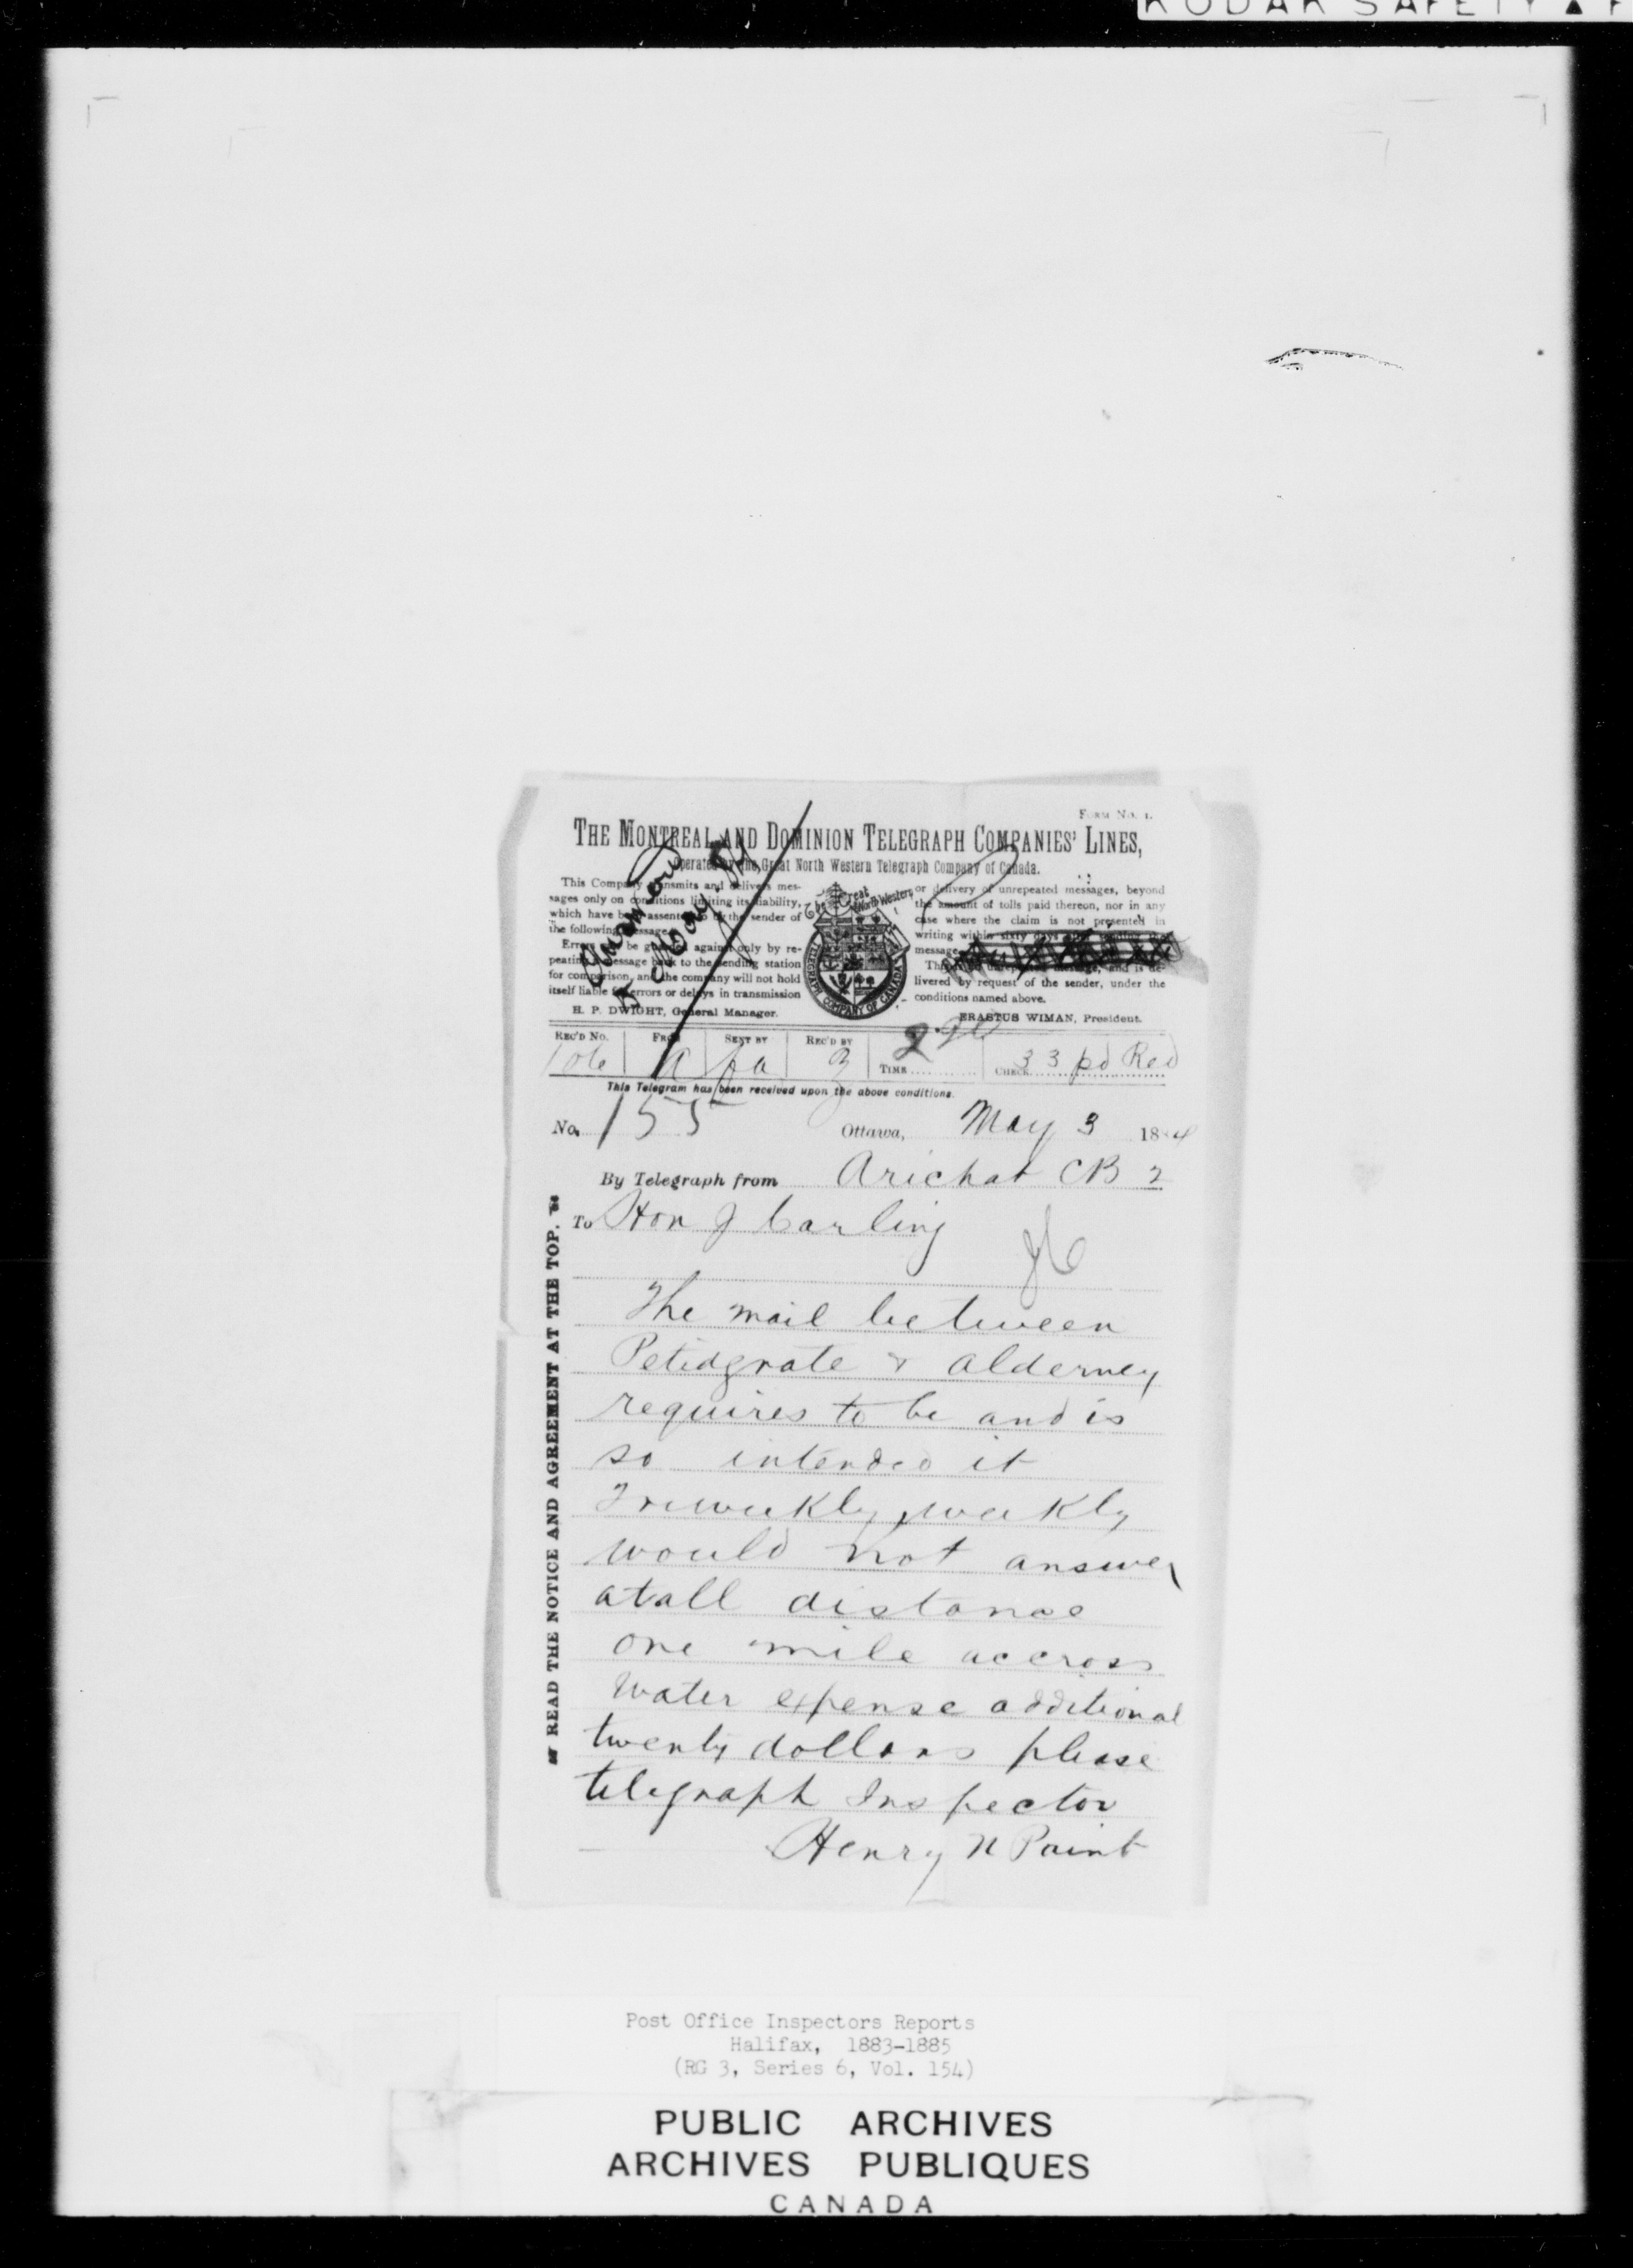 KODAK SAFETY ▲ F
FORM No. 1.
THE MONTREAL AND DOMINION TELEGRAPH COMPANIES' LINES,
Operated by the Great North Western Telegraph Company of Canada.
This Company transmits and delivers mes-
sages only on conditions limiting its liability,
which have been assented to by the sender of
the following message.
Errors can be guarded against only by re-
peating a message back to the sending station
for comparison, and the company will not hold
itself liable for errors or delays in transmission
H. P. DWIGHT, General Manager.
The Great North Western
TELEGRAPH COMPANY OF CANADA
or delivery of unrepeated messages, beyond
the amount of tolls paid thereon, nor in any
case where the claim is not presented in
writing within sixty days
message.
This is an unrepeated message, and is de-
livered by request of the sender, under the
conditions named above.
ERASTUS WIMAN, President.
Answered
5 May 84
REC'D No. FROM SENT BY REC'D BY TIME CHECK
106 a fa 3 33 pd Red
This Telegram has been received upon the above conditions.
No. 155 Ottawa, May 3 1884
By Telegraph from Arichat CB 2
To Hon J Carling
JC
The mail between
Petidgrate & alderney
requires to be and is
so intended it
Triweekly, weekly
would not answer
atall distance
one mile accross
water expense additional
twenty dollars please
telegraph Inspector
Henry N Paint
READ THE NOTICE AND AGREEMENT AT THE TOP.
Post Office Inspectors Reports
Halifax, 1883-1885
(RG 3, Series 6, Vol. 154)
PUBLIC ARCHIVES
ARCHIVES PUBLIQUES
CANADA